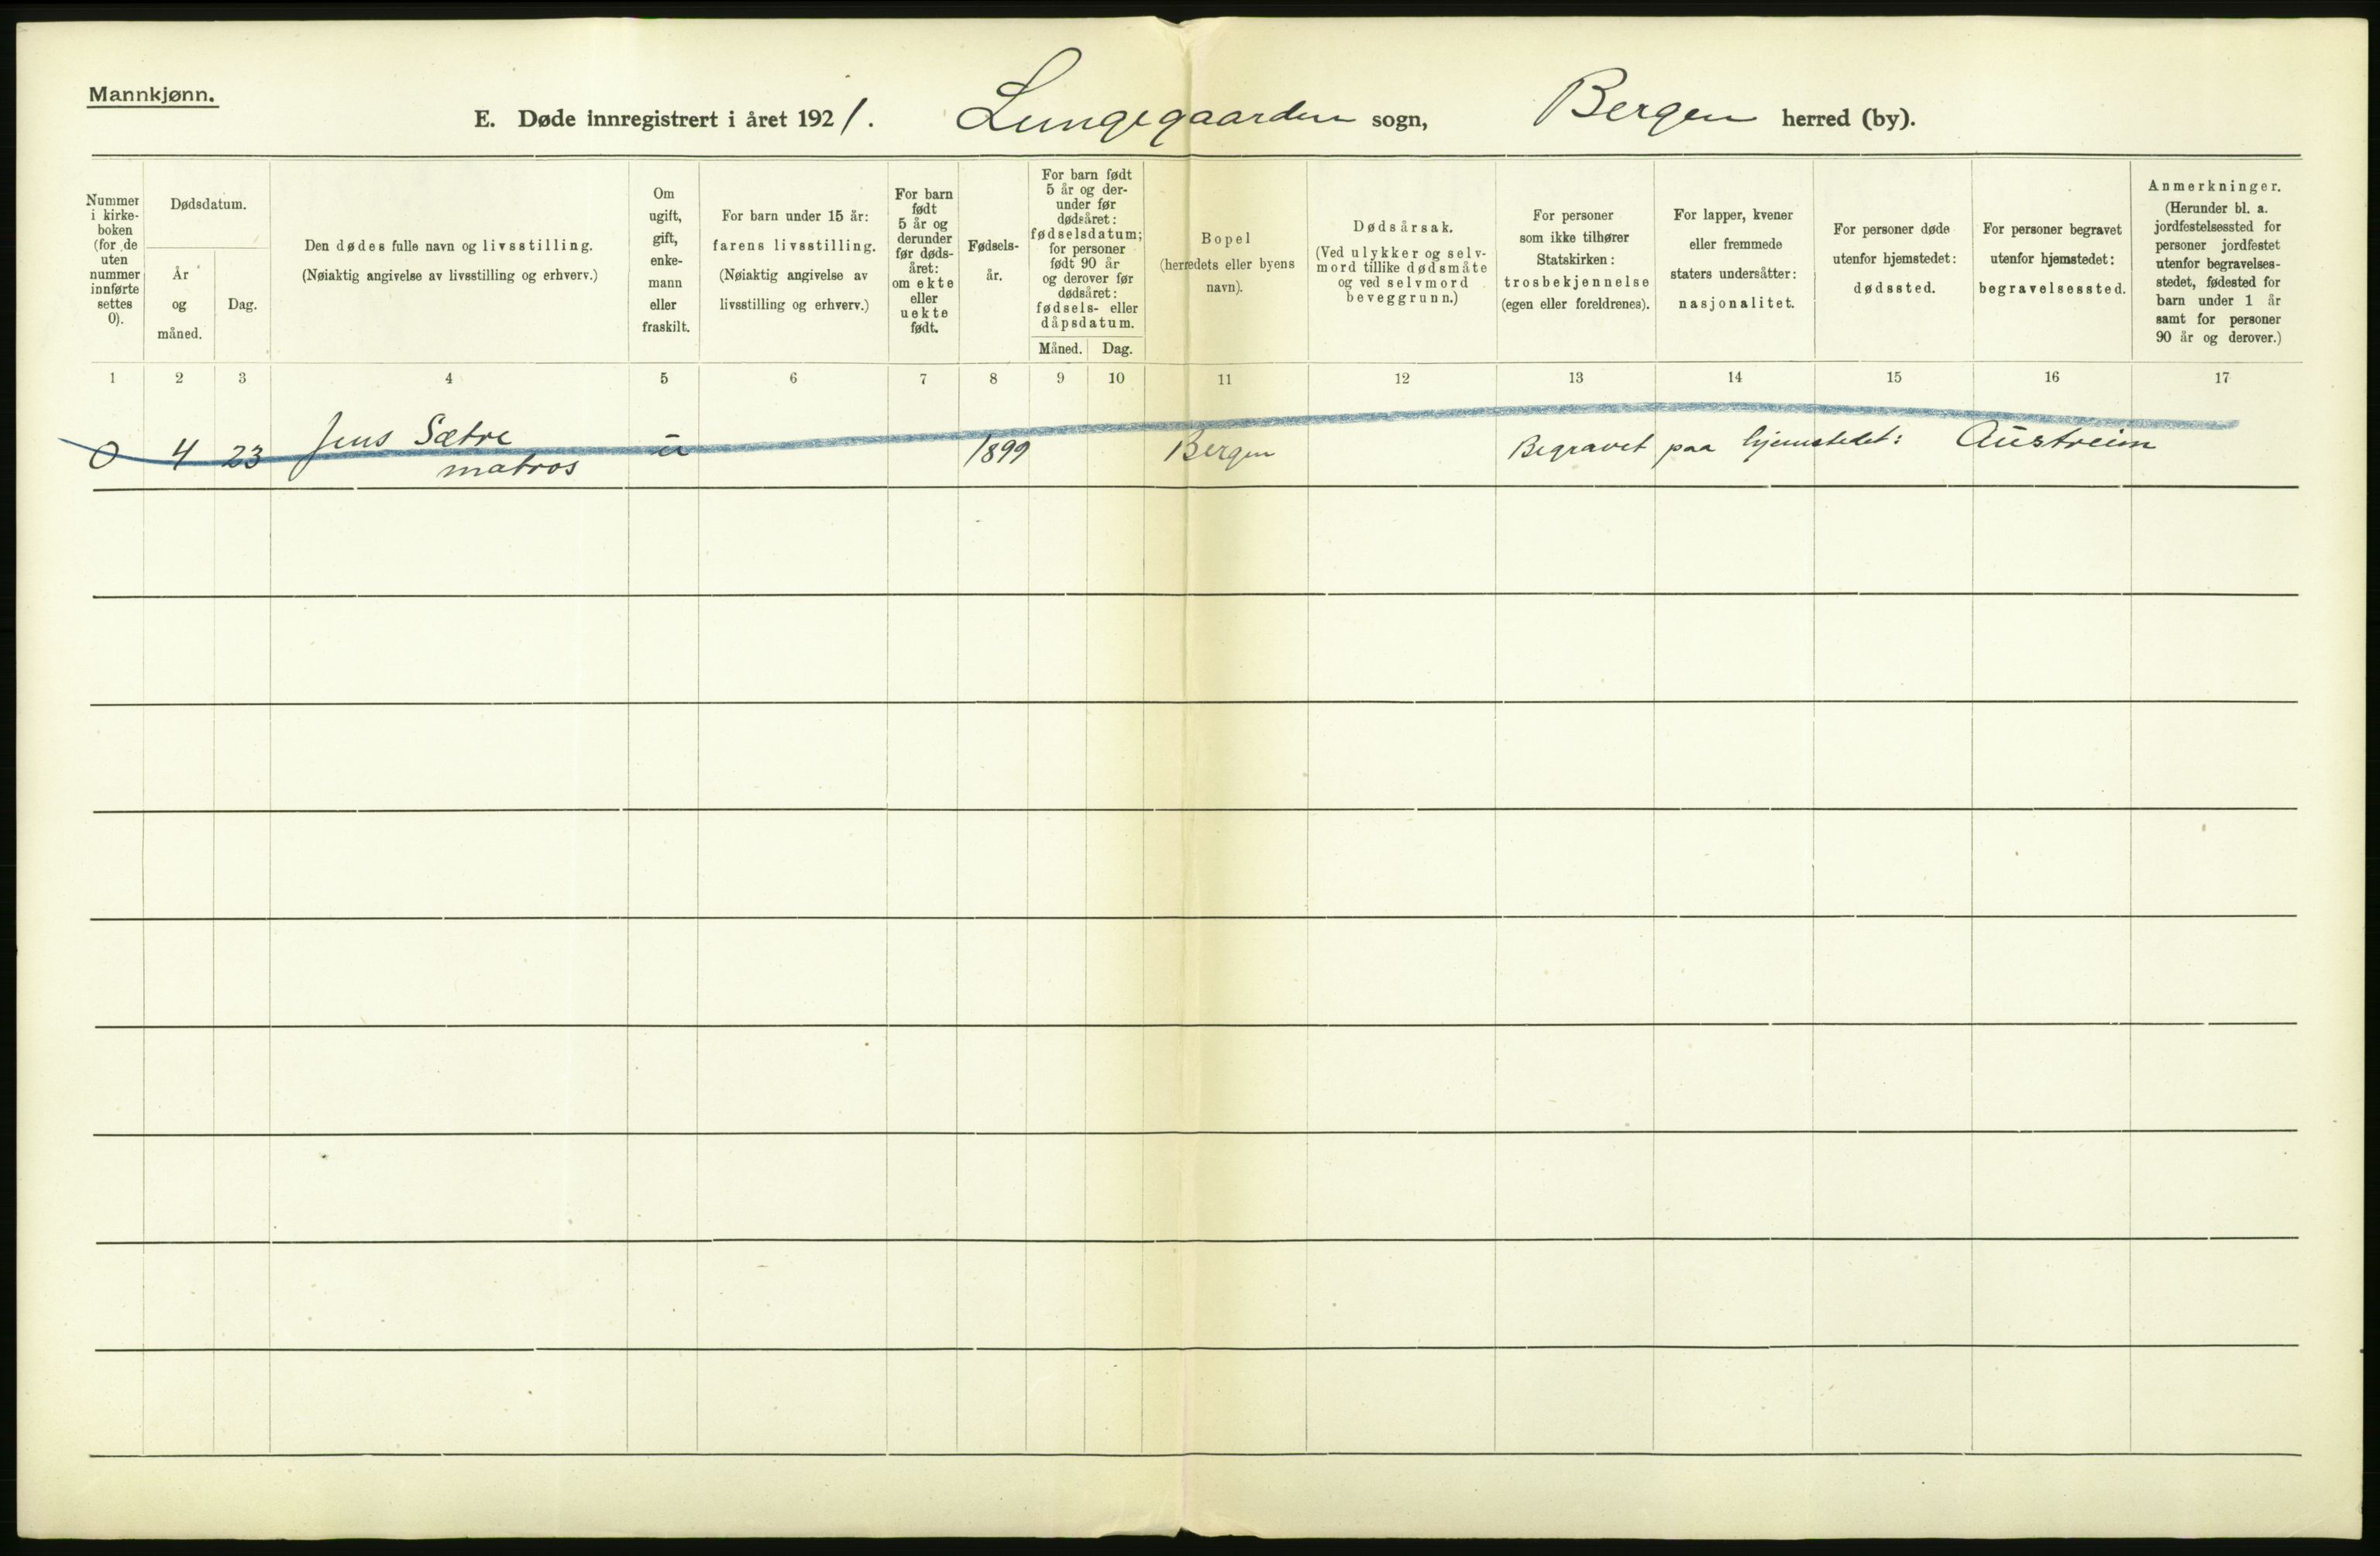 Mannkjønn.
E. Døde innregistrert i året 1921. Lungegaarden sogn, Bergen herred (by).
Nummer
i kirke-
boken
(for de
uten
nummer
innførte
settes
0).
Dødsdatum.
År
og
måned.
Dag.
Den dødes fulle navn og livsstilling.
(Nøiaktig angivelse av livsstilling og erhverv.)
Om
ugift,
gift,
enke-
mann
eller
fraskilt.
For barn under 15 år:
farens livsstilling.
(Nøiaktig angivelse av
livsstilling og erhverv.)
For barn
født
5 år og
derunder
før døds-
året:
om ekte
eller
uekte
født.
Fødsels-
år.
For barn født
5 år og der-
under før
dødsåret:
fødselsdatum;
for personer
født 90 år
og derover før
dødsåret:
fødsels- eller
dåpsdatum.
Måned. Dag.
Bopel
(herredets eller byens
navn).
Dødsårsak.
(Ved ulykker og selv-
mord tillike dødsmåte
og ved selvmord
beveggrunn.)
For personer
som ikke tilhører
Statskirken:
trosbekjennelse
(egen eller foreldrenes).
For lapper, kvener
eller fremmede
staters undersåtter:
nasjonalitet.
For personer døde
utenfor hjemstedet:
dødssted.
For personer begravet
utenfor hjemstedet:
begravelsessted.
Anmerkninger.
(Herunder bl. a.
jordfestelsessted for
personer jordfestet
utenfor begravelses-
stedet, fødested for
barn under 1 år
samt for personer
90 år og derover.)
1 2 3 4 5 6 7 8 9 10 11 12 13 14 15 16 17
0 4 23 Jens Sætre u 1899 Bergen Begravet paa hjemstedet: Austreim
matros